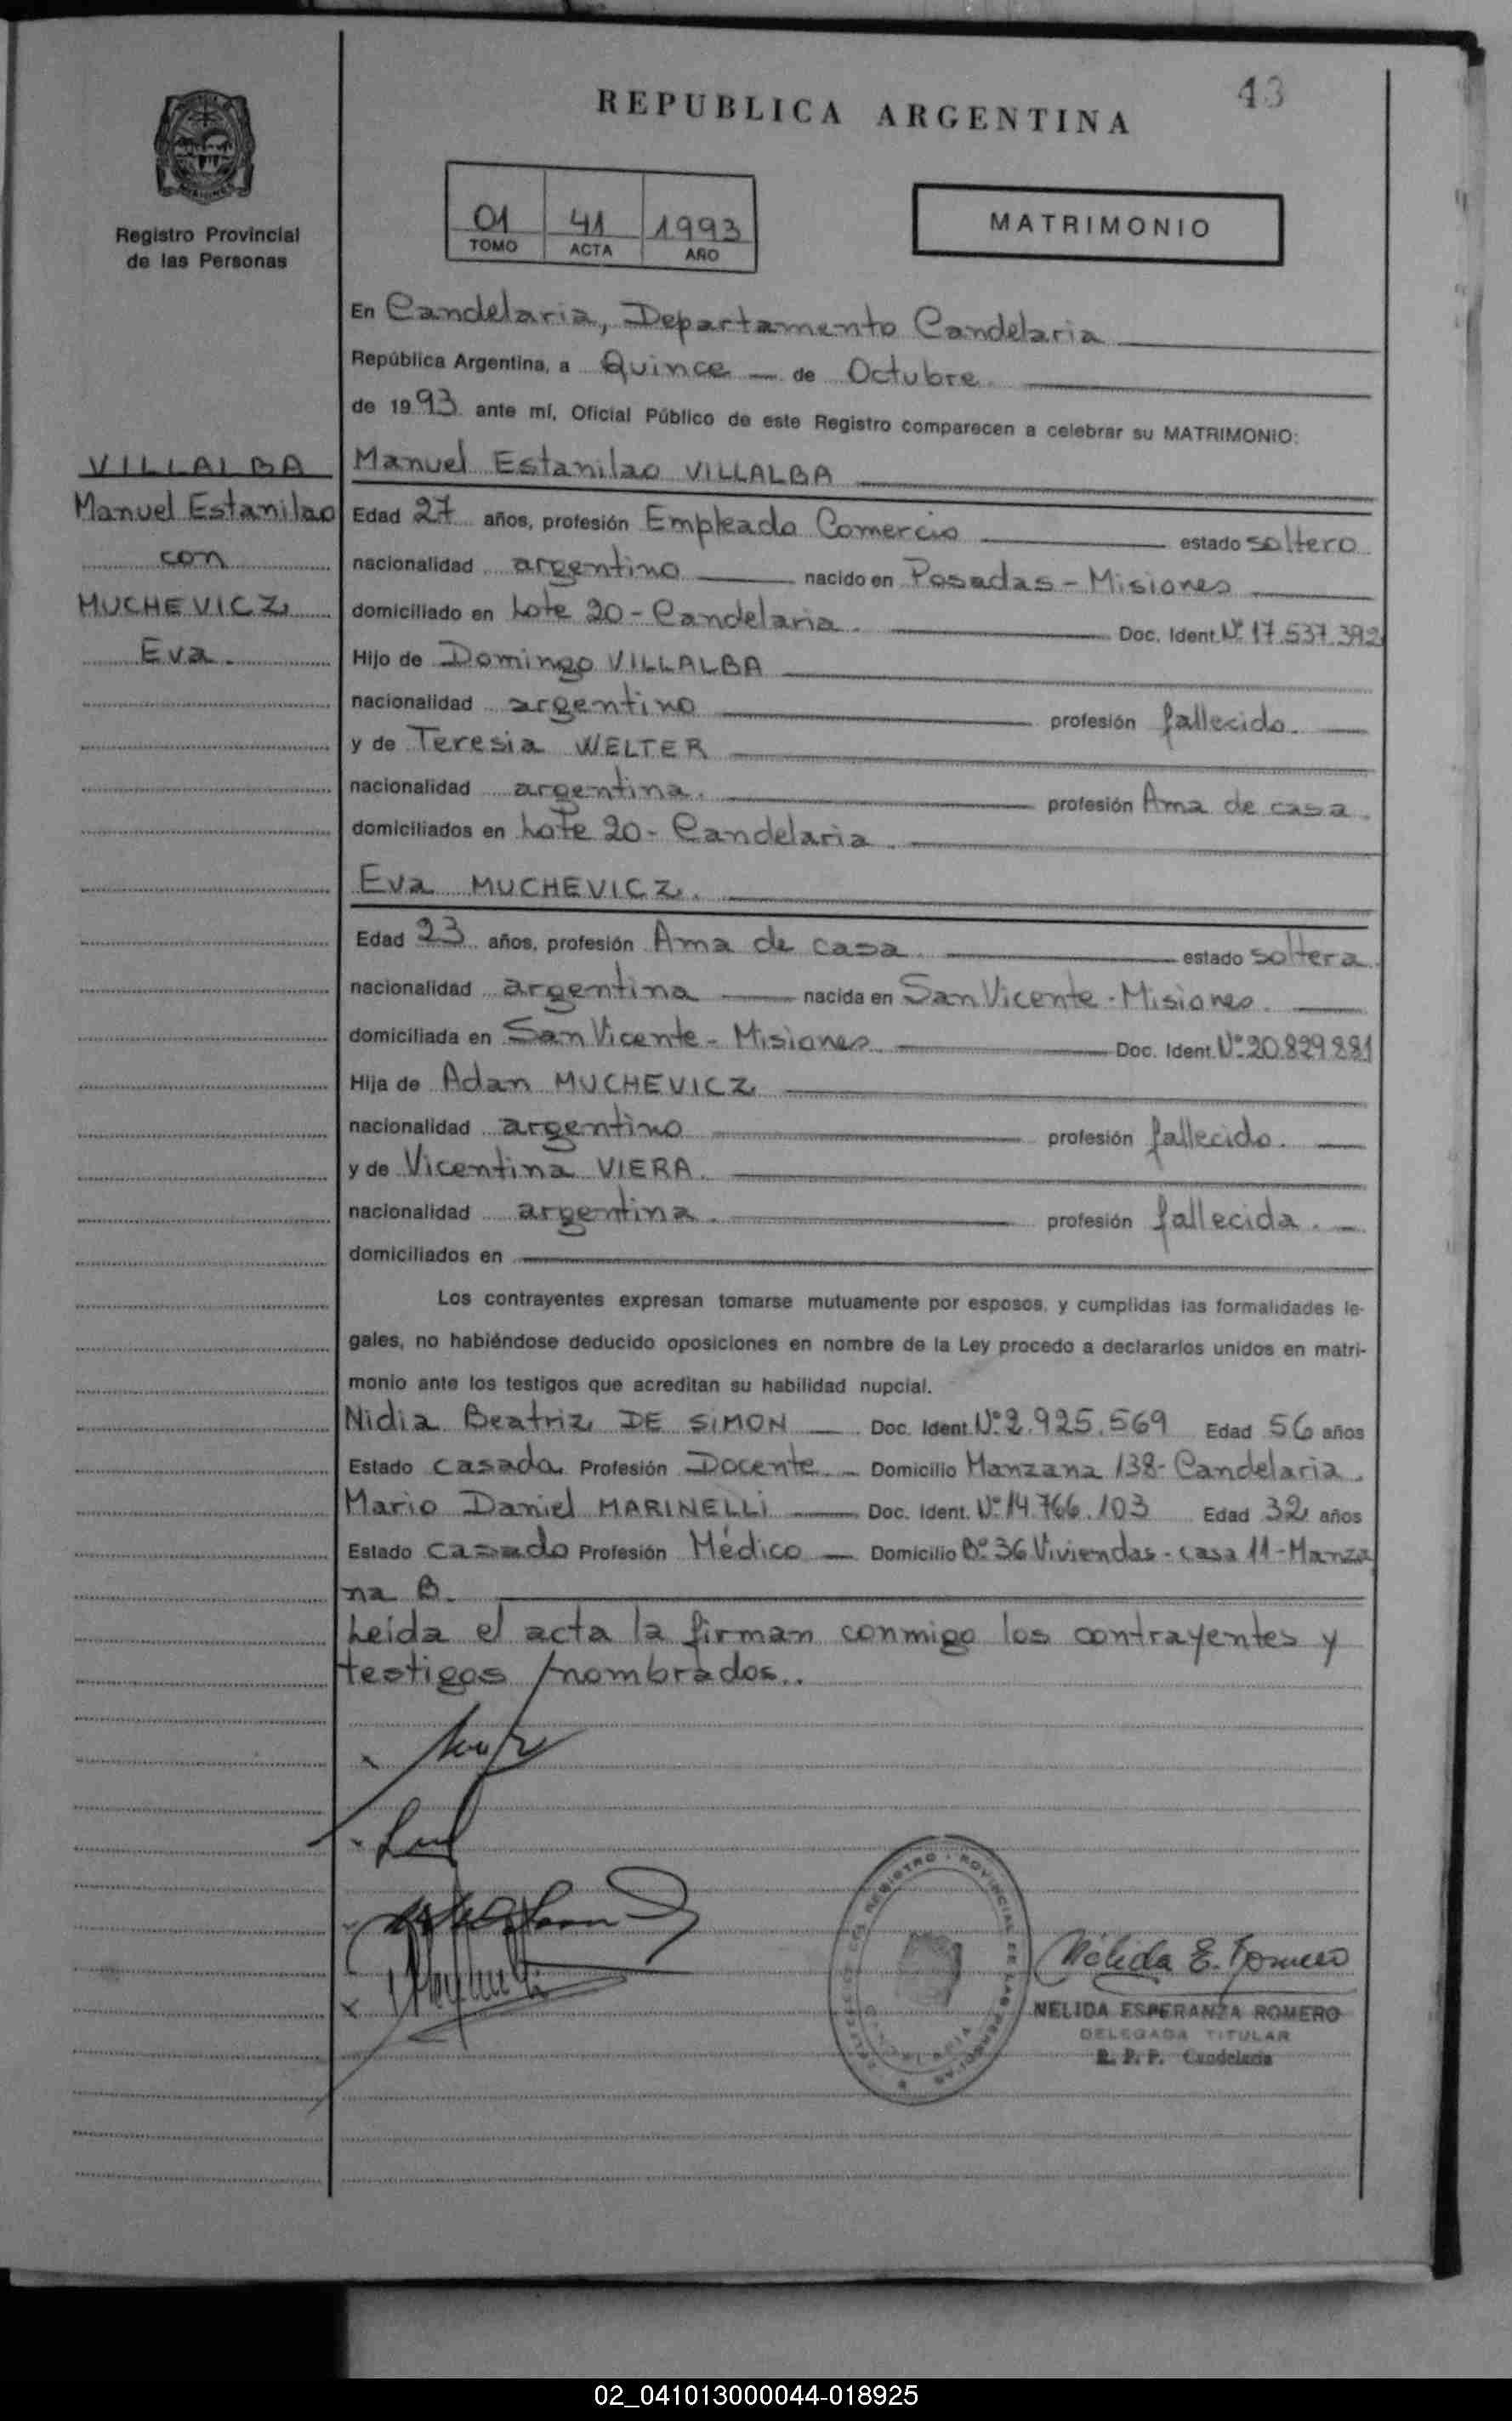 43
REPUBLICA ARGENTINA
Registro Provincial
de las Personas
01 41 1993
TOMO ACTA AÑO
MATRIMONIO
En Candelaria, Departamento Candelaria
República Argentina, a Quince de Octubre
de 1993 ante mí, Oficial Público de este Registro comparecen a celebrar su MATRIMONIO:
VILLALBA
Manuel Estanilao
con
MUCHEVICZ
Eva
Manuel Estanilao VILLALBA
Edad 27 años, profesión Empleado Comercio estado soltero
nacionalidad argentino nacido en Posadas - Misiones
domiciliado en Lote 20 - Candelaria. Doc. Ident. Nº 17.537.392
Hijo de Domingo VILLALBA
nacionalidad argentino profesión fallecido.
y de Teresia WELTER
nacionalidad argentina. profesión Ama de casa.
domiciliados en Lote 20 - Candelaria.
Eva MUCHEVICZ.
Edad 23 años, profesión Ama de casa. estado soltera.
nacionalidad argentina nacida en San Vicente - Misiones.
domiciliada en San Vicente - Misiones Doc. Ident. Nº 20.829.881
Hija de Adan MUCHEVICZ
nacionalidad argentino profesión fallecido.
y de Vicentina VIERA.
nacionalidad argentina. profesión fallecida.
domiciliados en
Los contrayentes expresan tomarse mutuamente por esposos, y cumplidas las formalidades le-
gales, no habiéndose deducido oposiciones en nombre de la Ley procedo a declararlos unidos en matri-
monio ante los testigos que acreditan su habilidad nupcial.
Nidia Beatriz DE SIMON Doc. Ident. Nº 2.925.569 Edad 56 años
Estado casada Profesión Docente. Domicilio Manzana 138 - Candelaria.
Mario Daniel MARINELLI Doc. Ident. Nº 14.766.103 Edad 32 años
Estado casado Profesión Médico Domicilio Bº 36 Viviendas - casa 11 - Manza
na B.
Leída el acta la firman conmigo los contrayentes y
testigos nombrados..
Nélida E. Romero
NELIDA ESPERANZA ROMERO
DELEGADA TITULAR
R. P. P. Candelaria
REGISTRO PROVINCIAL DE LAS PERSONAS
02_041013000044-018925